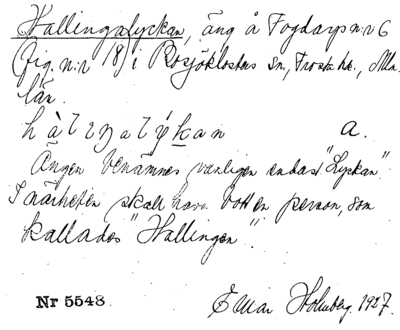 Hallingalyckan, äng å Fogdarp n:r 6
(fig. n:r 18) i Bosjöklosters sn, Frosta hd., Mlm.
län.
hàlıŋalýkan a.
Ängen benämnes vanligen endast "Lyckan"
I närheten skall hava bott en person, som
kallades "Hallingen".
Nr 5548. Elmar Holmberg. 1927.